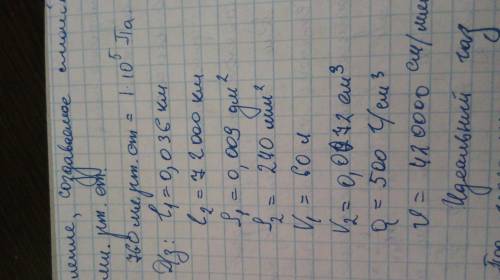 ление, создаваемое
мм. рт. ст.
760 мм.рт.ст = 1·10⁵ Па
Дз: l₁ = 0,036 км
l₂ = 72000 км
S₁ = 0,009 дм²
S₂ = 240 мм²
V₁ = 60 л
V₂ = 0,0072 см³
q = 500 г/см³
v = 420000 см/мин
Идеальный газ